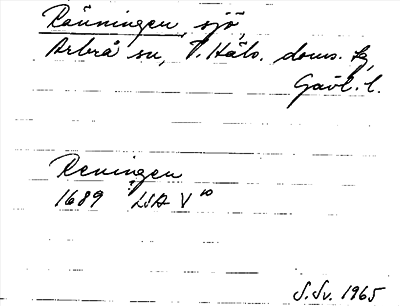 Ränningen, sjö,
Arbrå sn, V. Häls. doms. tg,
Gävl. l.
Reningen
1689 LSA V 10
S. Sv. 1965